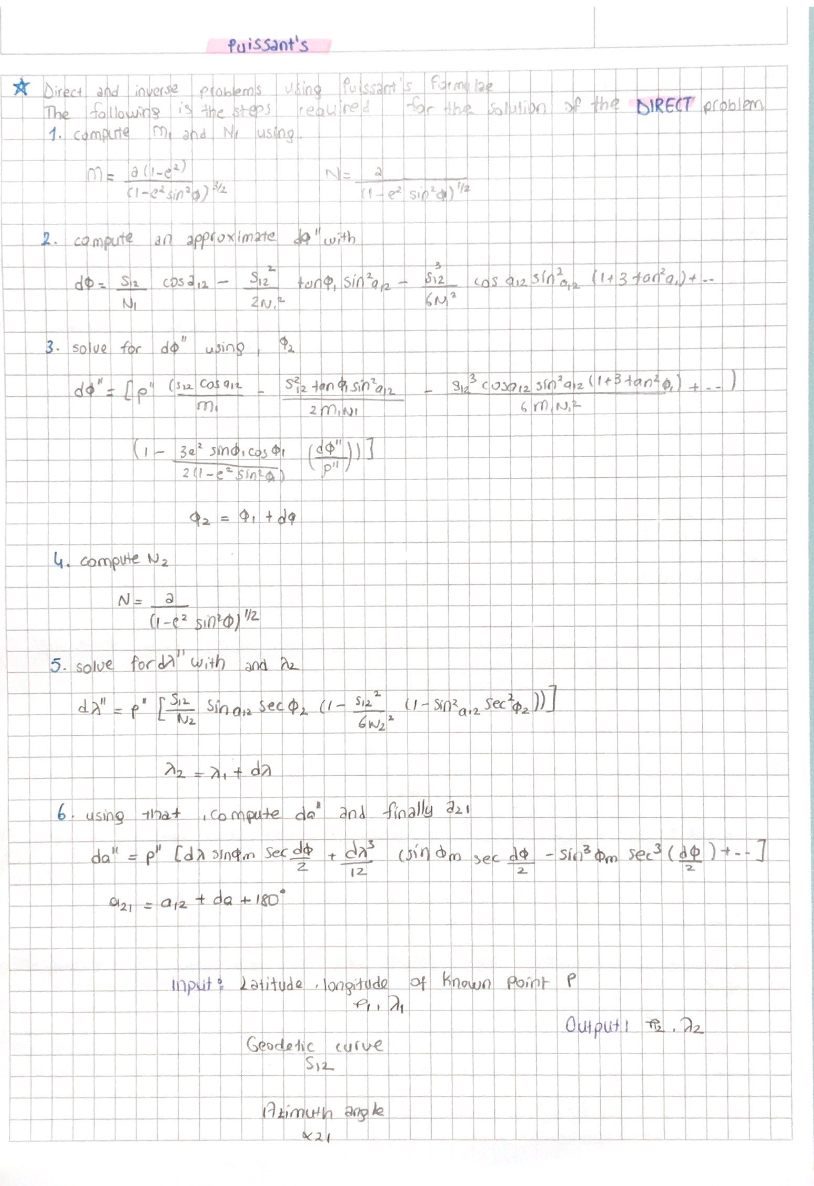 Puissant's
☆ Direct and inverse problems using Puissant's Formulae
The following is the steps required for the solution of the DIRECT problem
1. compute M₁ and N₁ using
M = a(1-e²) / (1-e²sin²φ)^3/2    N = a / (1-e² sin²φ)^1/2
2. compute an approximate dφ" with
dφ = S₁₂/N₁ cos a₁₂ - S₁₂²/2N₁² tanφ₁ sin²a₁₂ - S₁₂³/6N₁³ cos a₁₂ sin²a₁₂ (1+3tan²a₁)+..
3. solve for dφ" using, φ₂
dφ" = [ρ" (S₁₂ cos a₁₂/M₁ - S₁₂² tan φ₁ sin²a₁₂/2M₁N₁ - S₁₂³ cos a₁₂ sin²a₁₂ (1+3tan²φ₁)/6M₁N₁² + ..)
(1 - 3e² sinφ₁ cos φ₁/2(1-e² sin²φ) (dφ"/ρ"))]
φ₂ = φ₁ + dφ
4. compute N₂
N = a / (1-e² sin²φ)^1/2
5. solve for dλ" with and λ₂
dλ" = ρ" [S₁₂/N₂ sin a₁₂ sec φ₂ (1 - S₁₂²/6N₂² (1 - sin²a₁₂ sec²φ₂))]
λ₂ = λ₁ + dλ
6. using that, compute da" and finally a₂₁
da" = ρ" [dλ sinφm sec dφ/2 + dλ³/12 (sin φm sec dφ/2 - sin³ φm sec³ (dφ/2) + --]
a₂₁ = a₁₂ + da + 180°
Input: Latitude, longitude of Known Point P
φ₁, λ₁
Output: φ₂, λ₂
Geodetic curve
S₁₂
Azimuth angle
α21